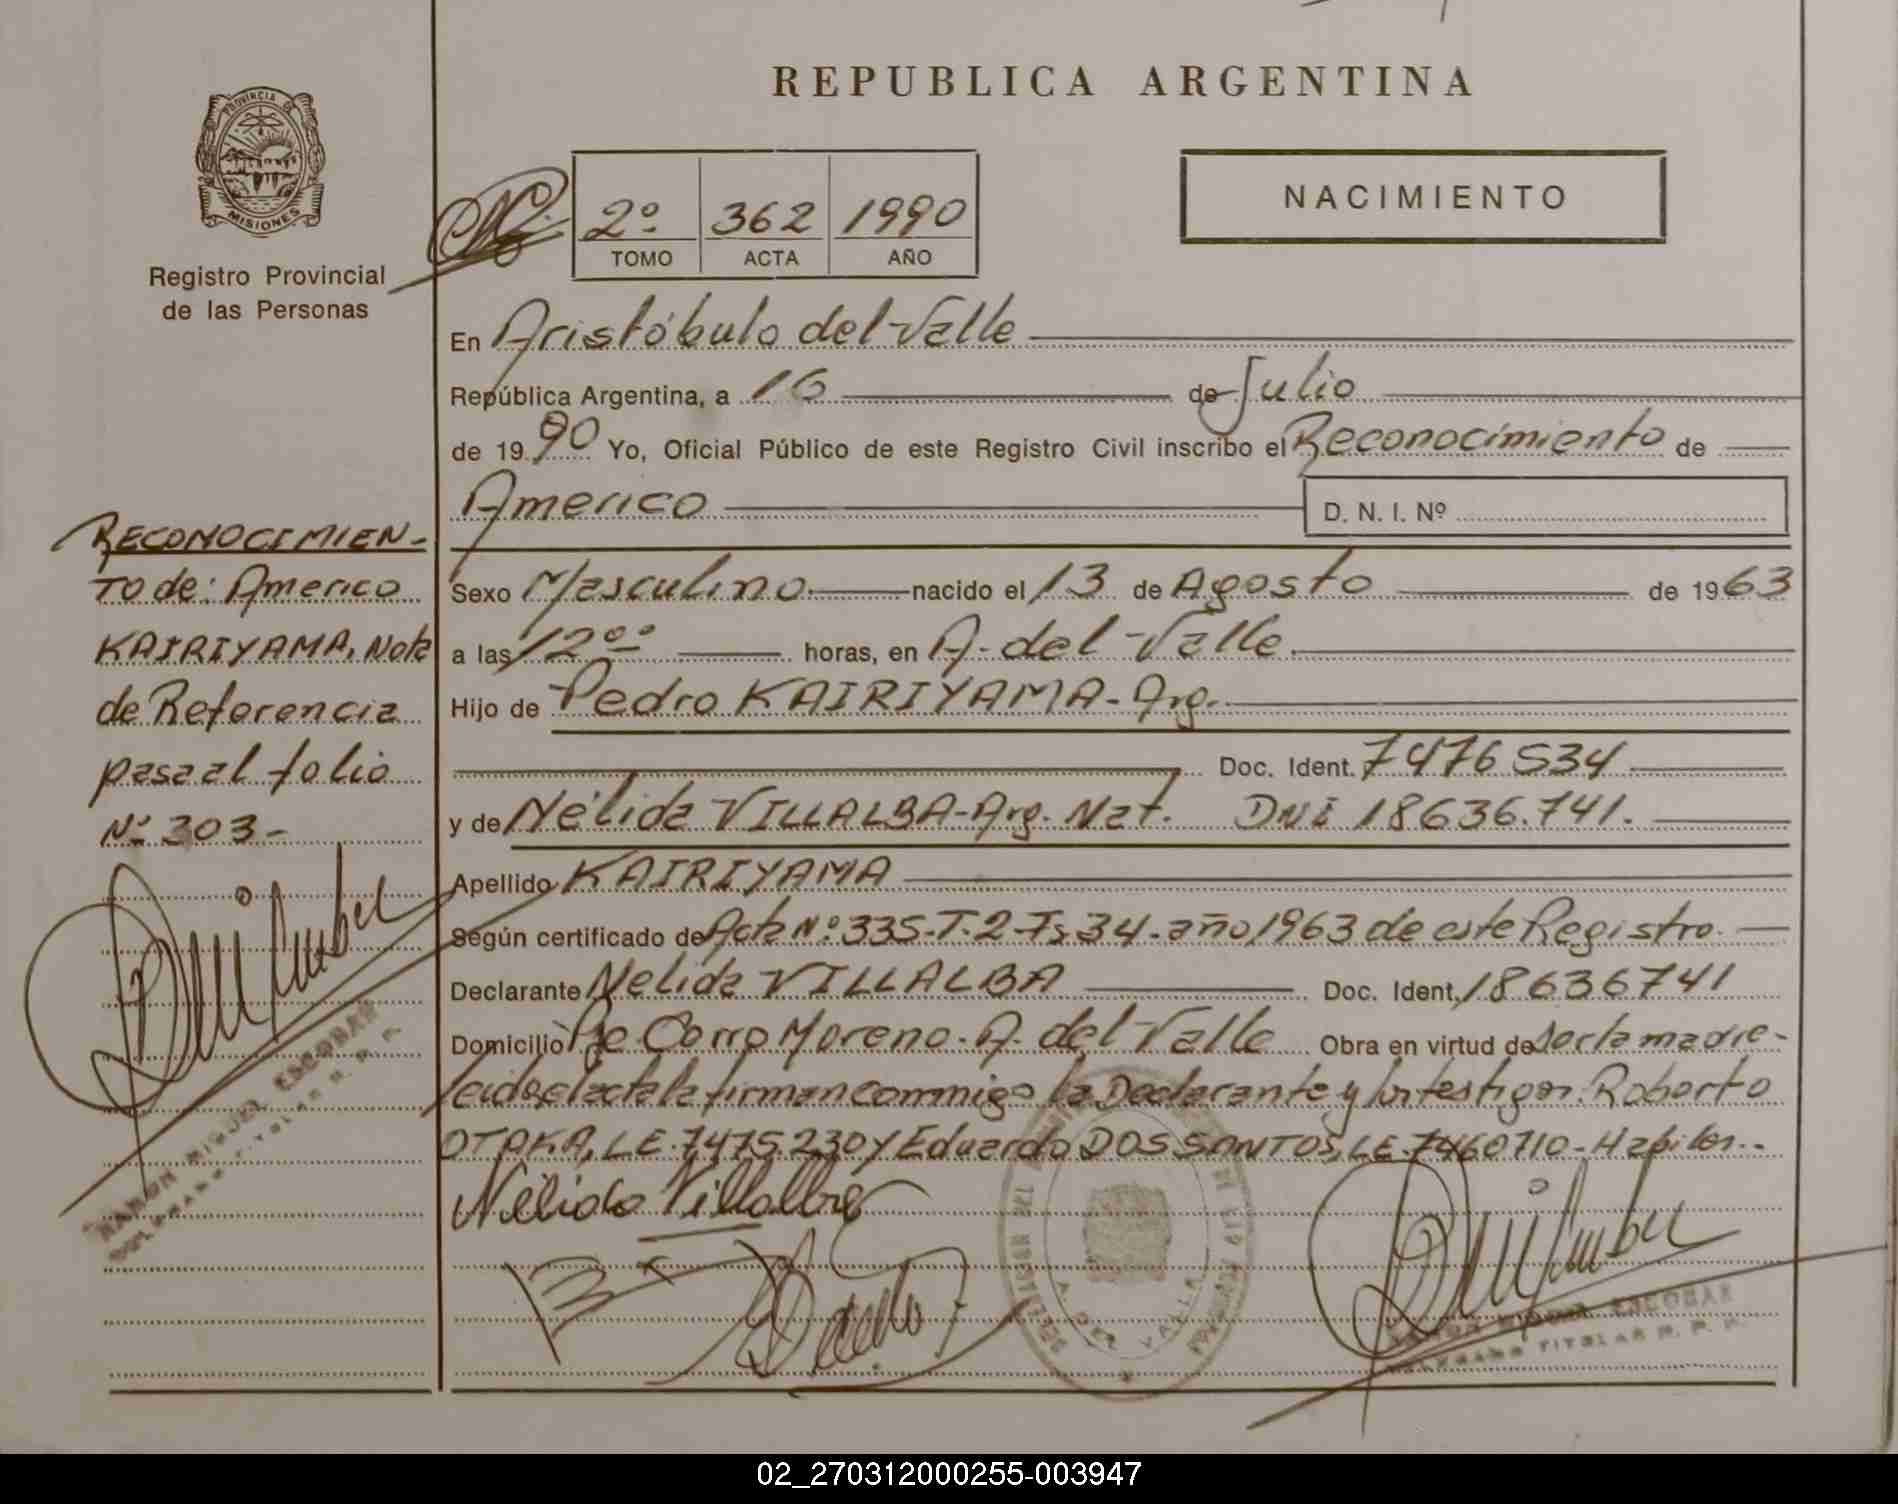 REPUBLICA ARGENTINA
PROVINCIA DE
MISIONES
Registro Provincial
de las Personas
2º 362 1990
TOMO ACTA AÑO
NACIMIENTO
En Aristóbulo del Valle
República Argentina, a 16 de Julio
de 1990 Yo, Oficial Público de este Registro Civil inscribo el Reconocimiento de
Americo D. N. I. Nº
Sexo Masculino nacido el 13 de Agosto de 1963
a las 12ºº horas, en A. del Valle
Hijo de Pedro KAIRIYAMA - Arg.
Doc. Ident. 7476534
y de Nélida VILLALBA - Arg. Nat. DNI 18636.741.
Apellido KAIRIYAMA
Según certificado de Acta Nº 335-T.2-Fs 34-año 1963 de este Registro.
Declarante Nelida VILLALBA Doc. Ident. 18636741
Domicilio Pje Corro Moreno. A. del Valle Obra en virtud de ser la madre-
leida el acta la firman conmigo la Declarante y los testigos: Roberto
OTAKA, LE. 7475.230 y Eduardo DOS SANTOS, LE. 7460710 - Habiles.-
Nélida Villalba
RECONOCIMIEN-
TO de: Americo
KAIRIYAMA, Nota
de Referencia
pasa al folio
Nº 303-
RAMON MIGUEL ESCOBAR
TITULAR R. P. P.
A. DEL VALLE
ESCOBAR
TITULAR R. P. P.
02_270312000255-003947